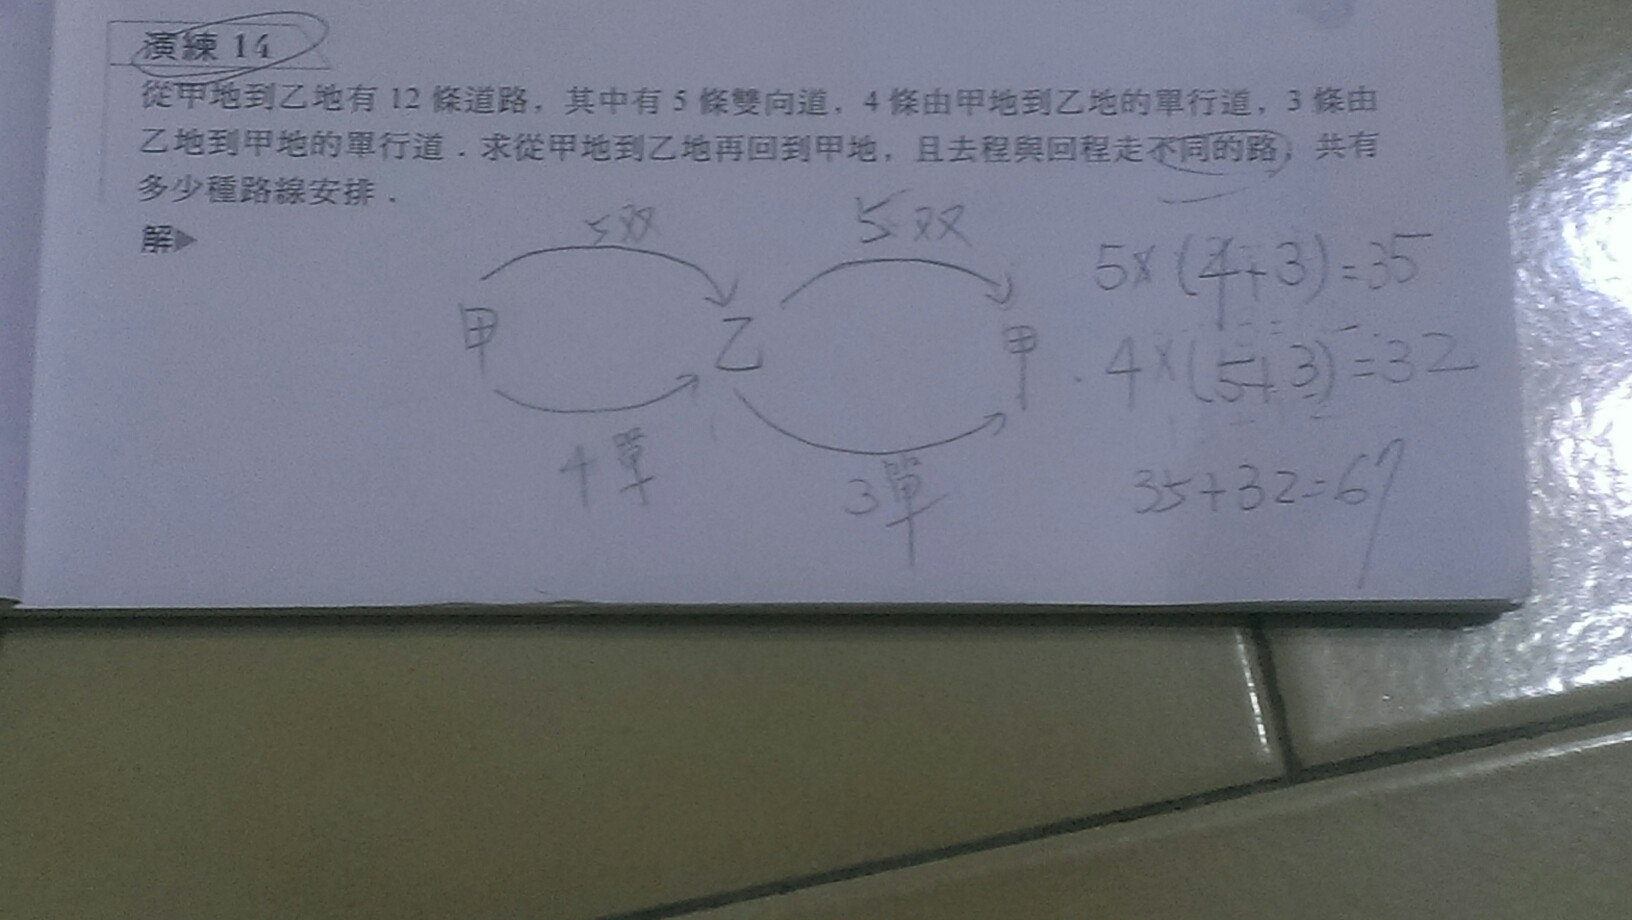 演練 14
從甲地到乙地有 12 條道路，其中有 5 條雙向道，4 條由甲地到乙地的單行道，3 條由
乙地到甲地的單行道．求從甲地到乙地再回到甲地，且去程與回程走不同的路，共有
多少種路線安排．
解▶
5双 5双
甲 乙 甲
4單 3單
5×(4+3)=35
4×(5+3)=32
35+32=67